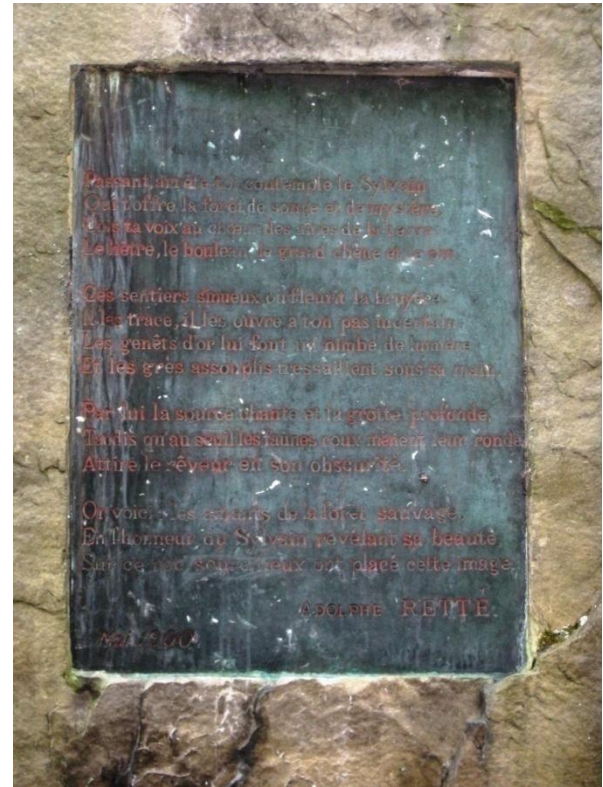 Passant, arrête-toi, contemple le Sylvain
Qui t'offre la forêt de songe et de mystère
voix au
Le hêtre, le bouleau, le grand chêne et le
Ces sentiers sinueux où fleurit la bruyère
Il les trace, il les ouvre à ton pas incertain
Les genêts d'or lui font un nimbe de lumière
Et les grès assouplis tressaillent sous sa main.
Par lui la source chante et la grotte profonde,
Tandis qu'au seuil les faunes mènent leur ronde
Attire le rêveur en son obscurité.
Or voici: les de la forêt sauvage,
En l'honneur du Sylvain révélant sa beauté
Sur ce roc sourcilleux ont placé cette image.
ADOLPHE RETTÉ.
Mai 1900